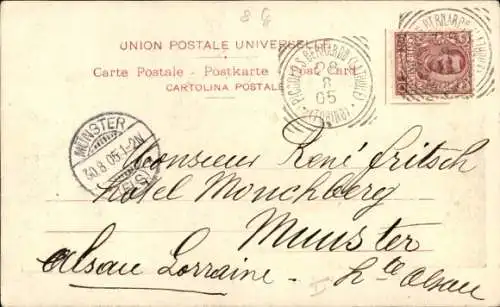 UNION POSTALE UNIVERSELLE
Carte Postale - Postkarte - Post Card
CARTOLINA POSTALE
PICCOLO S. BERNARDO
28
8
05
MÜNSTER
30.8.05.1-2N
(ELS)
Monsieur René Fritsch
Hotel Monchberg
Munster
Alsace Lorraine - Hte Alsace